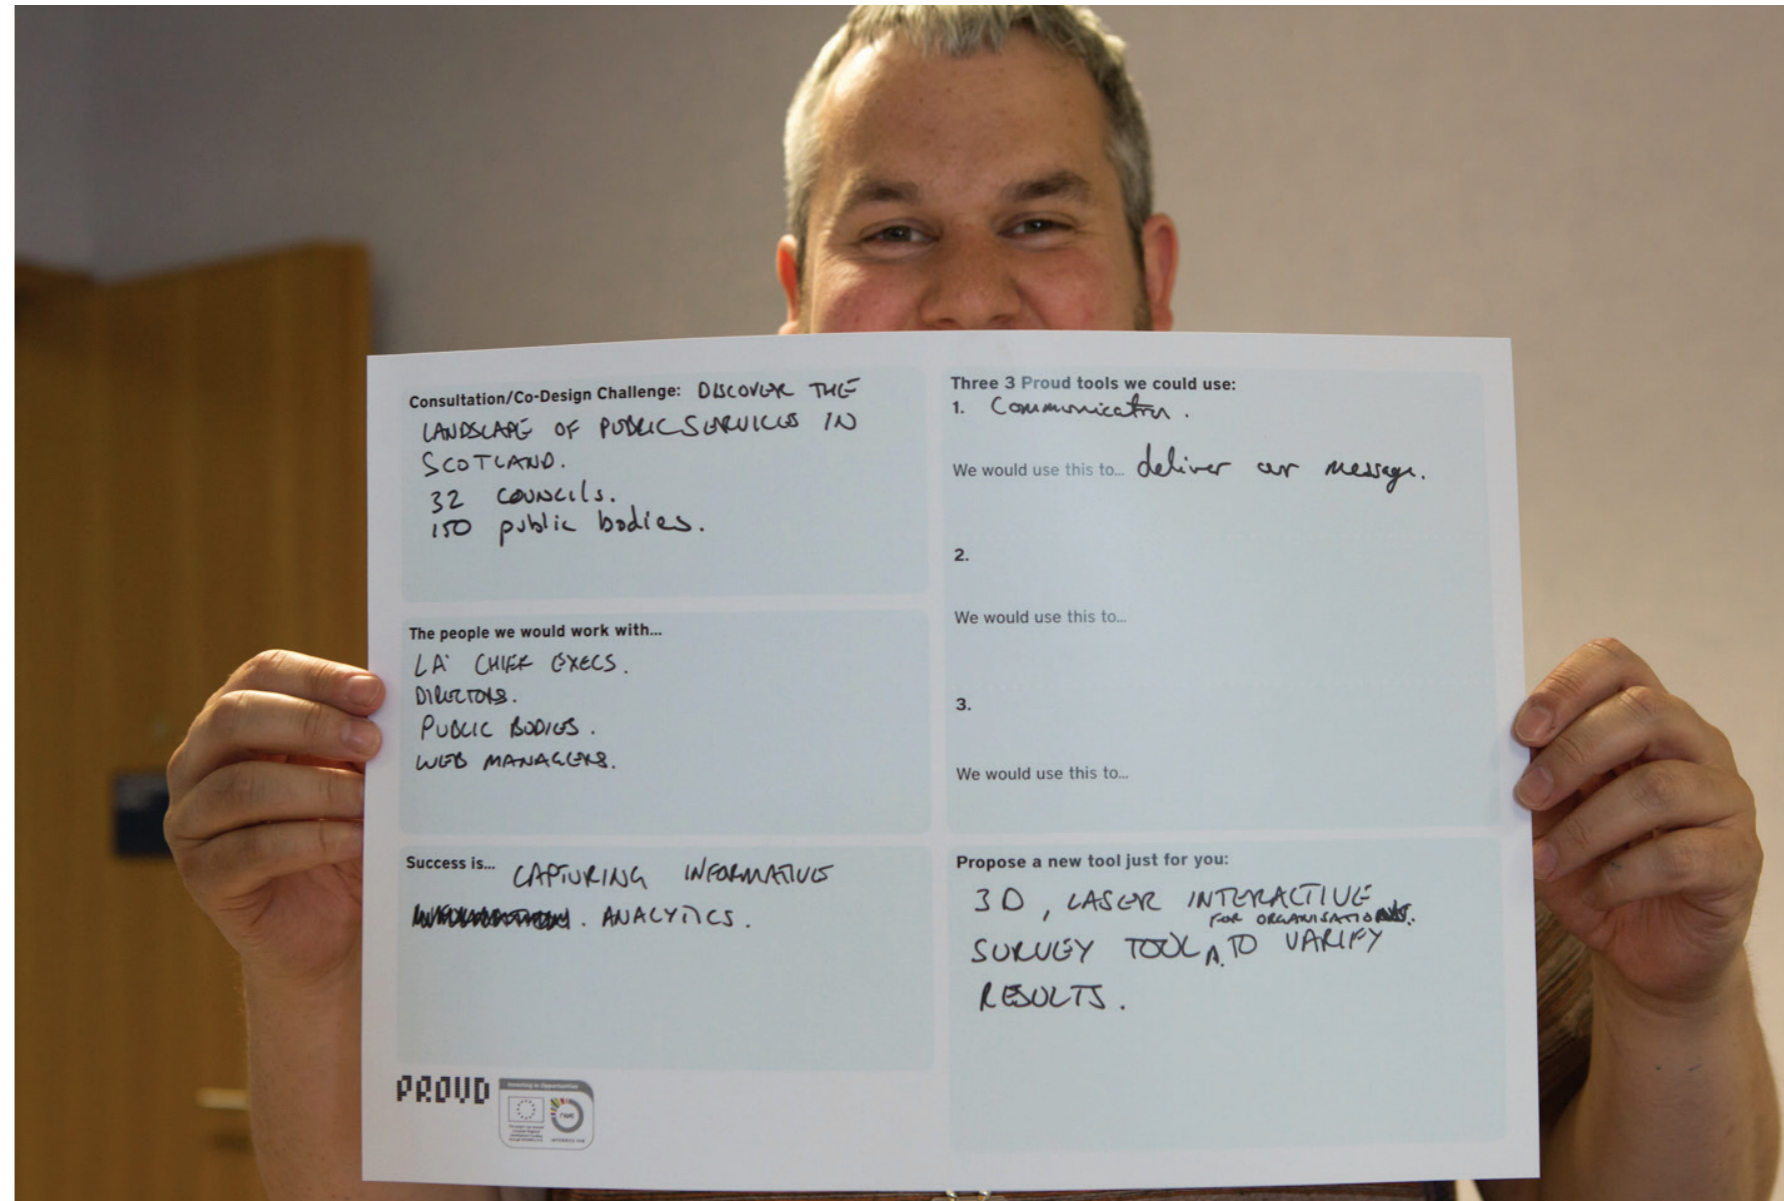 Consultation/Co-Design Challenge: DISCOVER THE
LANDSCAPE OF PUBLIC SERVICES IN
SCOTLAND.
32 COUNCILS.
150 public bodies.
The people we would work with...
LA CHIEF EXECS.
DIRECTORS.
PUBLIC BODIES.
WEB MANAGERS.
Success is... CAPTURING INFORMATIVE
. ANALYTICS.
Three 3 Proud tools we could use:
1. Communication.
We would use this to... deliver our message.
2.
We would use this to...
3.
We would use this to...
Propose a new tool just for you:
3D, LASER INTERACTIVE
FOR ORGANISATIONS.
SURVEY TOOL TO VARIFY
RESULTS.
PROUD
Investing in Opportunities
nwe
INTERREG IVB